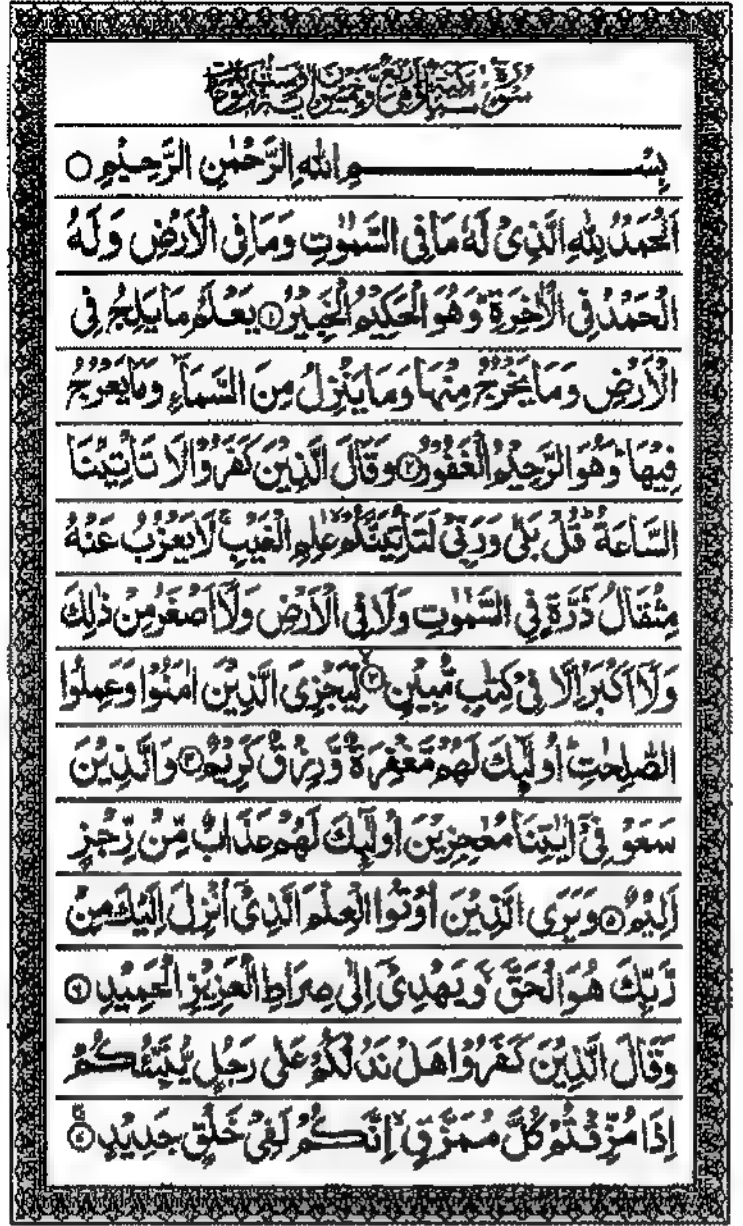 سورة سبا مكية وهي اربع وخمسون اية وست ركوعات
بِسْمِ اللهِ الرَّحْمٰنِ الرَّحِيْمِ ○
اَلْحَمْدُ لِلّٰهِ الَّذِىْ لَهٗ مَا فِى السَّمٰوٰتِ وَمَا فِى الْاَرْضِ وَلَهُ
الْحَمْدُ فِى الْاٰخِرَةِ ؕ وَهُوَ الْحَكِيْمُ الْخَبِيْرُ ۱ يَعْلَمُ مَا يَلِجُ فِى
الْاَرْضِ وَمَا يَخْرُجُ مِنْهَا وَمَا يَنْزِلُ مِنَ السَّمَآءِ وَمَا يَعْرُجُ
فِيْهَا ؕ وَهُوَ الرَّحِيْمُ الْغَفُوْرُ ۲ وَقَالَ الَّذِيْنَ كَفَرُوْا لَا تَاْتِيْنَا
السَّاعَةُ ؕ قُلْ بَلٰى وَرَبِّىْ لَتَاْتِيَنَّكُمْ ۙ عٰلِمِ الْغَيْبِ ۚ لَا يَعْزُبُ عَنْهُ
مِثْقَالُ ذَرَّةٍ فِى السَّمٰوٰتِ وَلَا فِى الْاَرْضِ وَلَاۤ اَصْغَرُ مِنْ ذٰلِكَ
وَلَاۤ اَكْبَرُ اِلَّا فِىْ كِتٰبٍ مُّبِيْنٍ ۳ لِّيَجْزِىَ الَّذِيْنَ اٰمَنُوْا وَعَمِلُوا
الصّٰلِحٰتِ ؕ اُولٰٓئِكَ لَهُمْ مَّغْفِرَةٌ وَّرِزْقٌ كَرِيْمٌ ۴ وَالَّذِيْنَ
سَعَوْ فِىْۤ اٰيٰتِنَا مُعٰجِزِيْنَ اُولٰٓئِكَ لَهُمْ عَذَابٌ مِّنْ رِّجْزٍ
اَلِيْمٌ ۵ وَيَرَى الَّذِيْنَ اُوْتُوا الْعِلْمَ الَّذِىْۤ اُنْزِلَ اِلَيْكَ مِنْ
رَّبِّكَ هُوَ الْحَقَّ ۙ وَيَهْدِىْۤ اِلٰى صِرَاطِ الْعَزِيْزِ الْحَمِيْدِ ۶
وَقَالَ الَّذِيْنَ كَفَرُوْا هَلْ نَدُلُّكُمْ عَلٰى رَجُلٍ يُّنَبِّئُكُمْ
اِذَا مُزِّقْتُمْ كُلَّ مُمَزَّقٍ ۙ اِنَّكُمْ لَفِىْ خَلْقٍ جَدِيْدٍ ۷